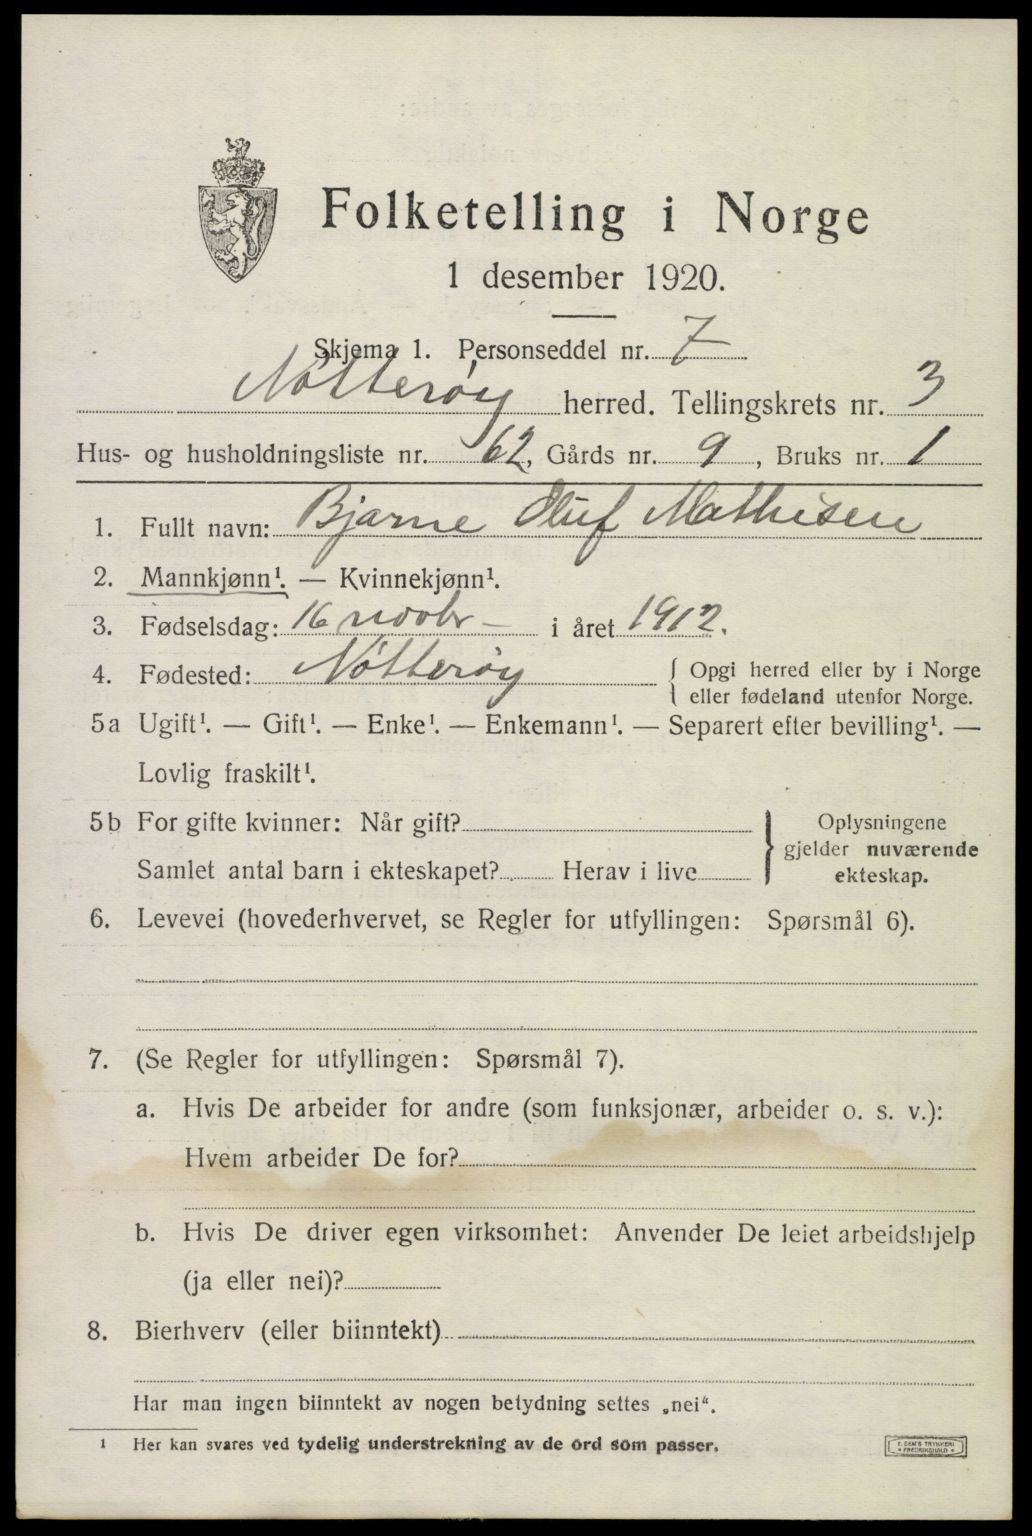 Folketelling i Norge
1 desember 1920.
Skjema 1. Personseddel nr. 7
Nötterøy herred. Tellingskrets nr. 3
Hus- og husholdningsliste nr. 62, Gårds nr. 9, Bruks nr. 1
1. Fullt navn: Bjarne Oluf Mathisen
2. Mannkjønn¹. — Kvinnekjønn¹.
3. Fødselsdag: 16 novbr — i året 1912.
4. Fødested: Nötterøy { Opgi herred eller by i Norge
eller fødeland utenfor Norge.
5a Ugift¹. — Gift¹. — Enke¹. — Enkemann¹. — Separert efter bevilling¹. —
Lovlig fraskilt¹.
5b For gifte kvinner: Når gift? } Oplysningene
gjelder nuværende
Samlet antal barn i ekteskapet? Herav i live ekteskap.
6. Levevei (hovederhvervet, se Regler for utfyllingen: Spørsmål 6).
7. (Se Regler for utfyllingen: Spørsmål 7).
a. Hvis De arbeider for andre (som funksjonær, arbeider o. s. v.):
Hvem arbeider De for?
b. Hvis De driver egen virksomhet: Anvender De leiet arbeidshjelp
(ja eller nei)?
8. Bierhverv (eller biinntekt)
Har man ingen biinntekt av nogen betydning settes „nei“.
¹ Her kan svares ved tydelig understrekning av de ord som passer.
E. SEM'S TRYKKERI
• FREDRIKSHALD •